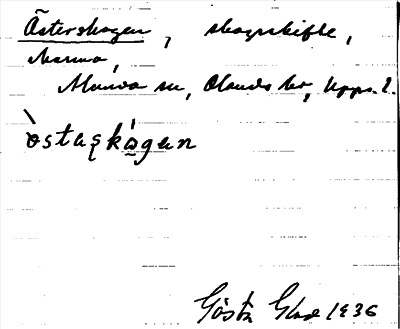 Österskogen, skogsskifte,
Marma,
Alunda sn, Olands hd, Upps. l.
òstaskògan
Gösta Glas 1936